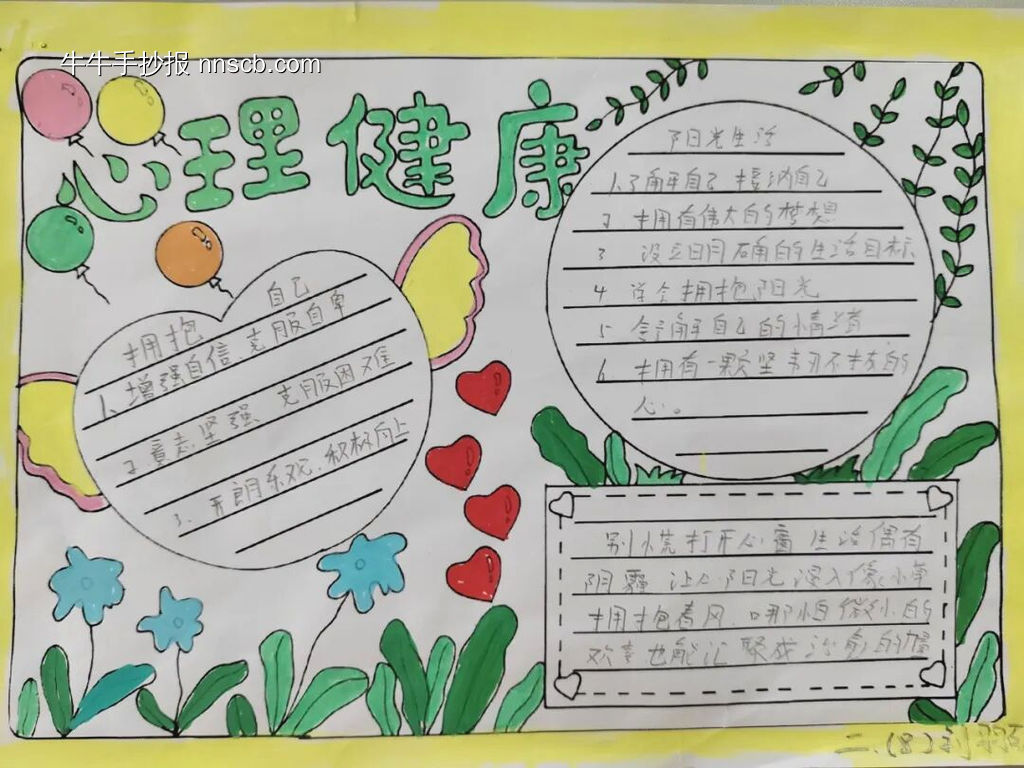 牛牛手抄报 nnscb.com
心理健康
拥抱自己
1、增强自信、克服自卑
2、意志坚强、克服困难
3、开朗乐观、积极向上
阳光生活
1、了解自己 接纳自己
2 拥有伟大的梦想
3 设立明确的生活目标
4 学会拥抱阳光
5 会解自己的情绪
6、拥有一颗坚韧不拔的
心。
别慌打开心窗 生活偶有
阴霾 让心阳光浸入像小草
拥抱春风、哪怕微小的
欢喜也能汇聚成治愈的
二、(8)